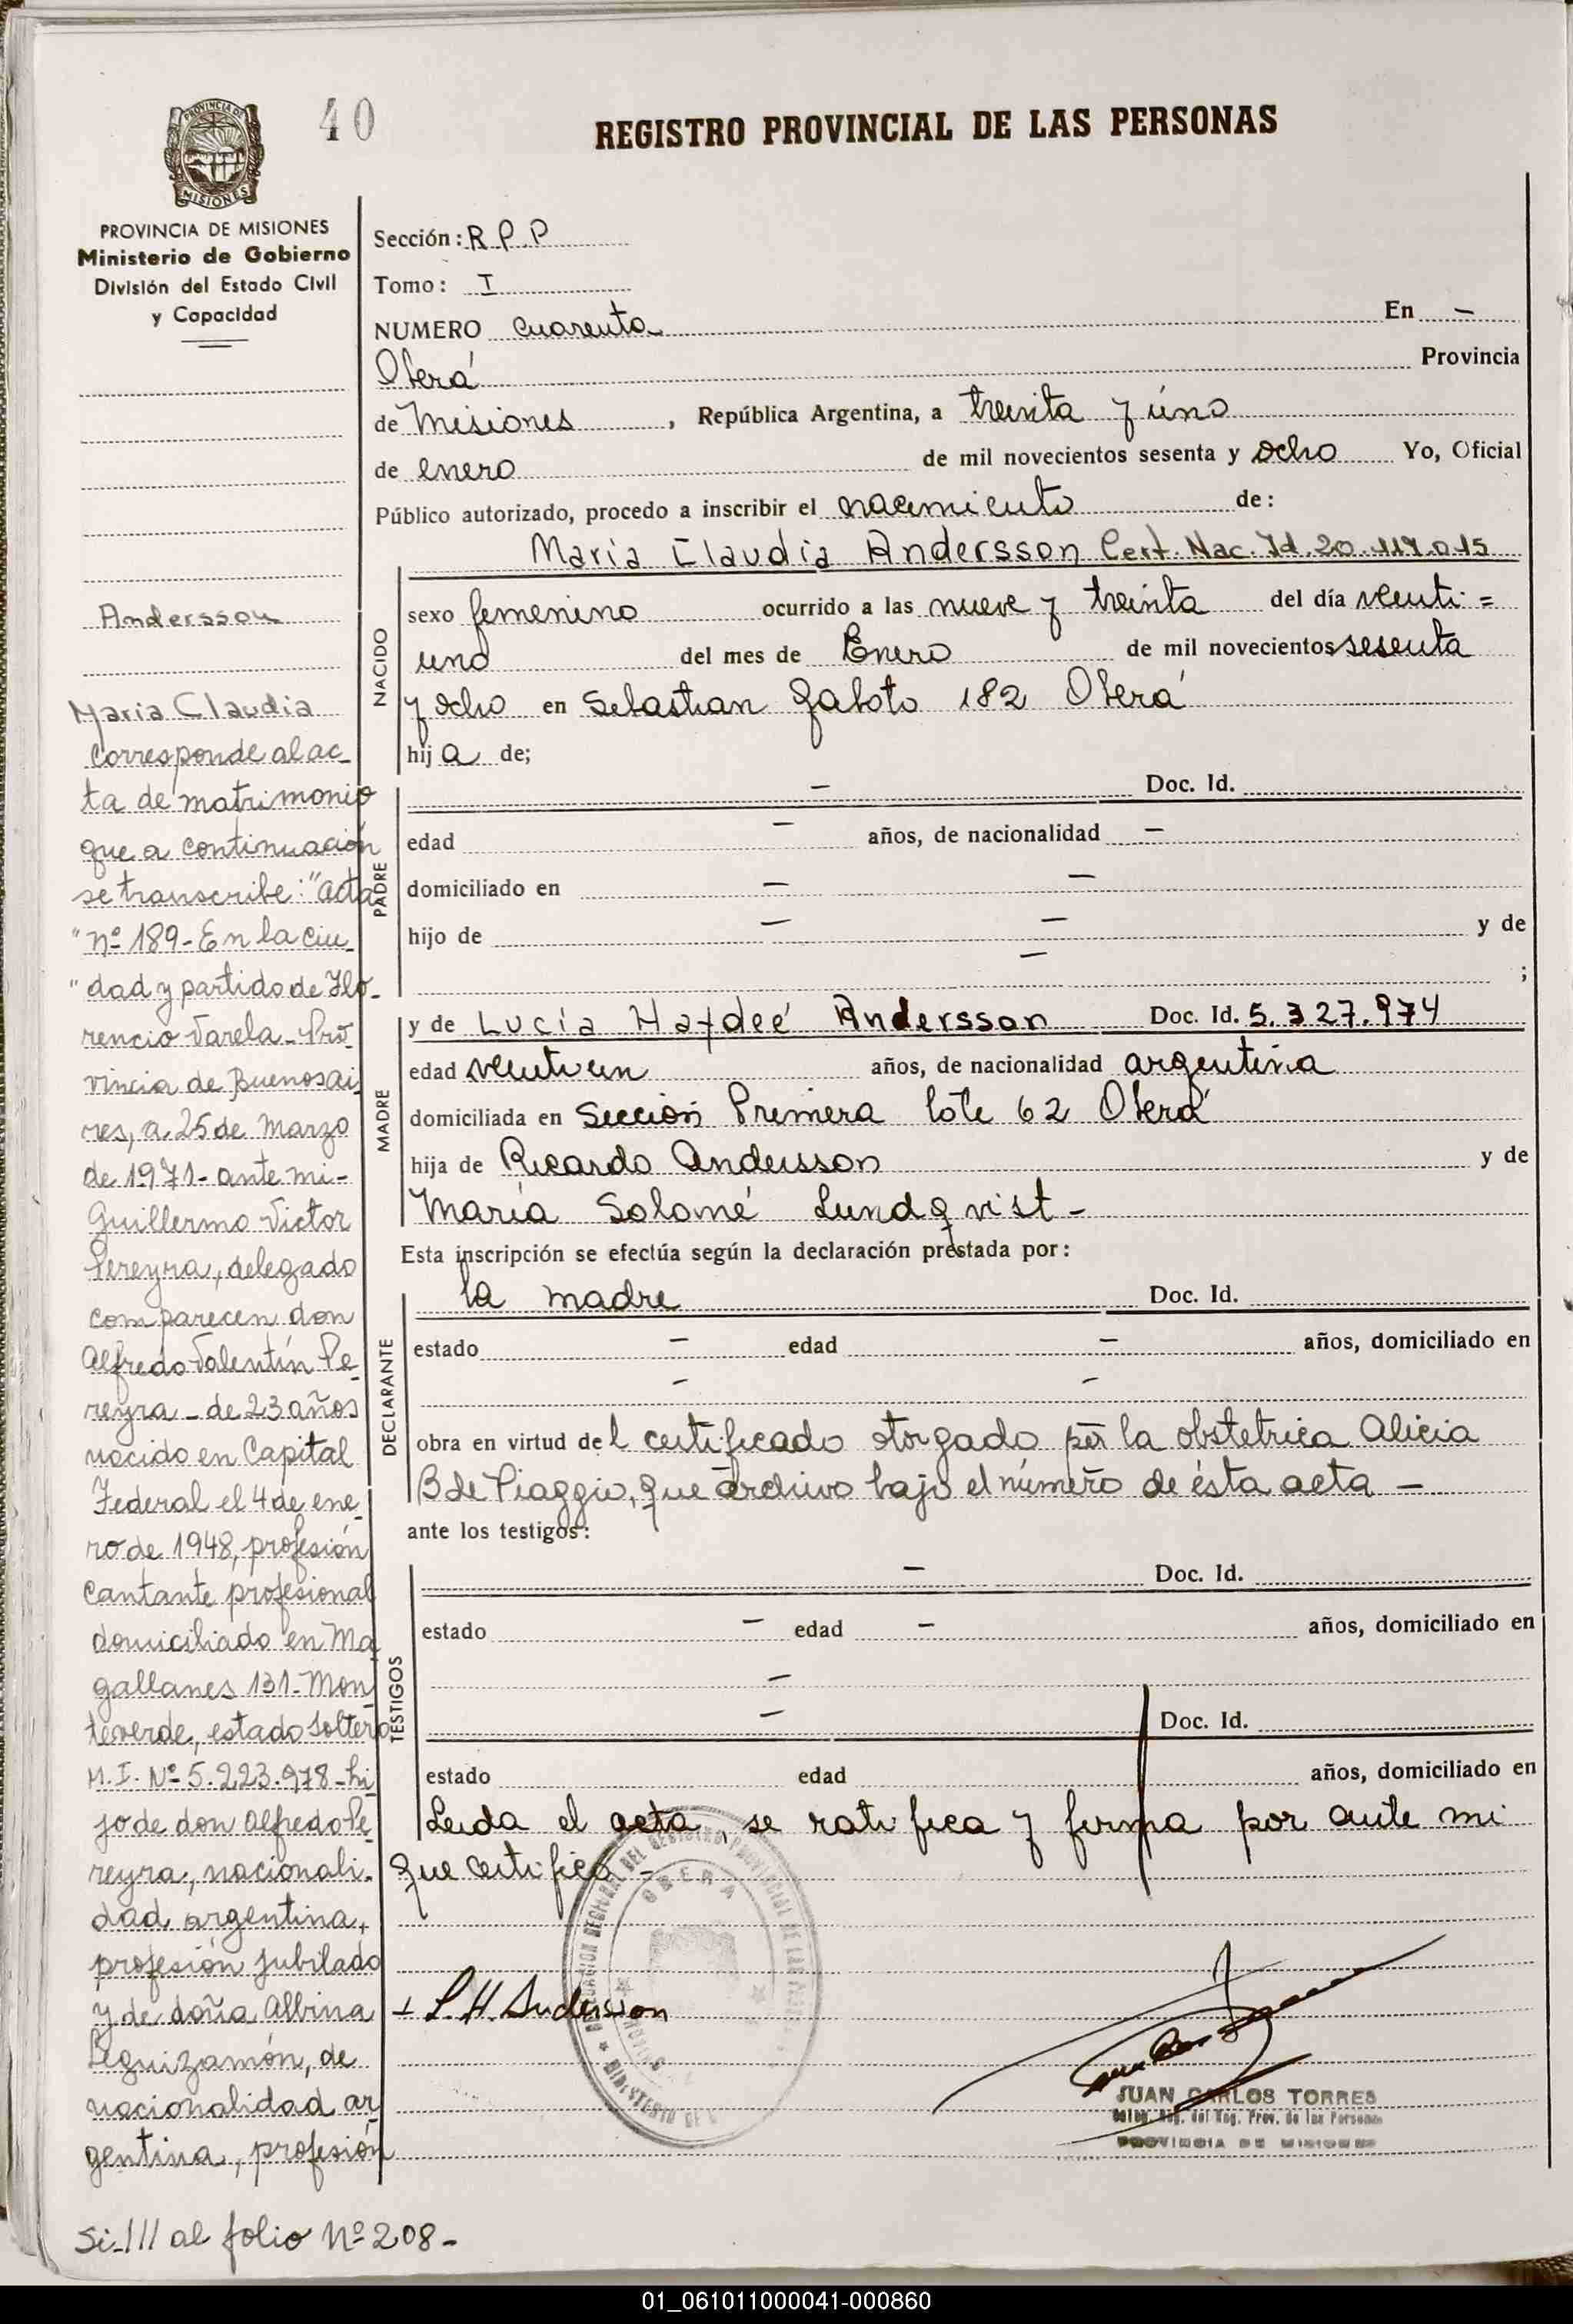 40
REGISTRO PROVINCIAL DE LAS PERSONAS
PROVINCIA DE MISIONES
Ministerio de Gobierno
División del Estado Civil
y Capacidad
Sección: R.P.P
Tomo: I
NUMERO cuarenta En —
Oberá Provincia
de Misiones, República Argentina, a treinta y uno
de enero de mil novecientos sesenta y ocho Yo, Oficial
Público autorizado, procedo a inscribir el nacimiento de:
María Claudia Andersson Cert. Nac. Id. 20.119.015
NACIDO
sexo femenino ocurrido a las nueve y treinta del día venti=
uno del mes de Enero de mil novecientos sesenta
y ocho en Sebastian Gaboto 182 Oberá
hija de;
PADRE
— Doc. Id.
edad — años, de nacionalidad —
domiciliado en — —
hijo de — — y de
— ;
MADRE
y de Lucía Haydeé Andersson Doc. Id. 5.327.974
edad ventiun años, de nacionalidad argentina
domiciliada en Sección Primera lote 62 Oberá
hija de Ricardo Andersson y de
María Solomé Lundqvist -
Esta inscripción se efectúa según la declaración prestada por:
DECLARANTE
la madre Doc. Id.
estado — edad — años, domiciliado en
— —
obra en virtud del certificado otorgado por la obstetrica Alicia
B de Piaggio, que archivo bajo el número de ésta acta —
ante los testigos:
TESTIGOS
— Doc. Id.
estado — edad — años, domiciliado en
—
— Doc. Id.
estado edad años, domiciliado en
Leida el acta, se ratifica y firma por ante mi
que certifico -
L.H. Andersson
OBERA
JUAN CARLOS TORRES
PROVINCIA DE MISIONES
Andersson
María Claudia
Corresponde al ac_
ta de matrimonio
que a continuación
se transcribe: "acta
"Nº 189- En la ciu_
"dad y partido de Flo-
rencio Varela - Pro_
vincia de Buenos Ai_
res, a 25 de Marzo
de 1971- ante mi-
Guillermo Victor
Pereyra, delegado
comparecen don
Alfredo Valentín Pe_
reyra - de 23 años
nacido en Capital
Federal el 4 de ene_
ro de 1948, profesión
Cantante profesional
domiciliado en Ma_
gallanes 131- Mon_
teverde, estado soltero
M.I. Nº 5.223.978- hi_
jo de don Alfredo Pe_
reyra, nacionali-
dad argentina,
profesión jubilado
y de doña Albina
Leguizamón, de
nacionalidad ar_
gentina, profesión
Si-/// al folio Nº 208-
01_061011000041-000860